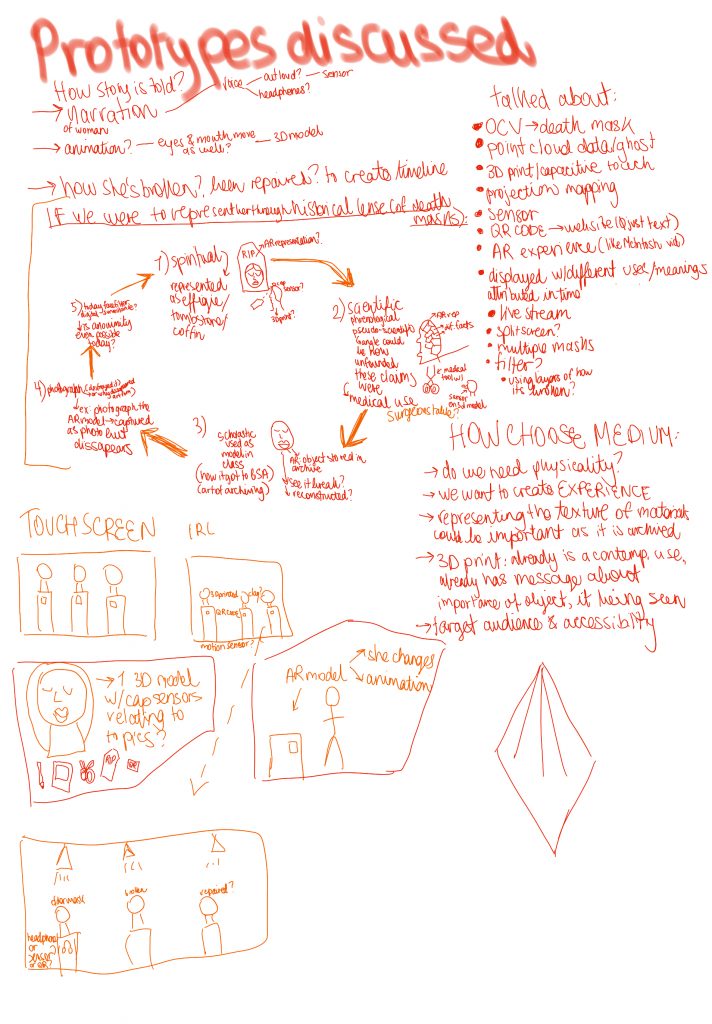 Prototypes discussed
How story is told?
voice
outloud?
sensor
headphones?
narration
of woman
animation?
eyes & mouth move
as well?
3D model
how she's broken?, been repaired? to create timeline
IF we were to represent her through historical lense (of death
masks):
1) spiritual
represented
as effigie/
tombstone/
coffin
RIP
AR representation?
sensor?
3D print?
2) scientific
phrenological
pseudo-scientific
Google could
be how
unfounded
these claims
were
medical use
AR rep
w/ facts
medical
tool w/
sensor
on 3D model
surgeons table?
3)
scholastic
used as
model in
class
(how it got to BSA)
(art of archiving)
AR object stored in
archive
see it break?
reconstructed?
4) photograph
ex: photograph the
AR model → captured
as photo but
dissapears
5) today
is anonimity
even possible
today?
talked about:
OCV → death mask
point cloud data/ghost
3D print/capacitive touch
projection mapping
sensor
QR CODE → website (or just text)
AR experience (like McIntosh vid)
displayed w/different uses/meanings
attributed in time
live stream
splitscreen?
multiple masks
filter?
using layers of how
its broken?
HOW CHOOSE MEDIUM:
do we need physicality?
we want to create EXPERIENCE
representing the texture of materials
could be important as it is archived
3D print: already is a contemp. use,
already has message about
importance of object, it being seen
target audience & accessiblity
TOUCHSCREEN
IRL
3D printed
clay?
QR CODE
motion sensor?
1 3D model
w/cap sensors
relating to
topics?
AR model
she changes
animation
death mask
broken
repaired?
headphones
or
sensor
or QR?